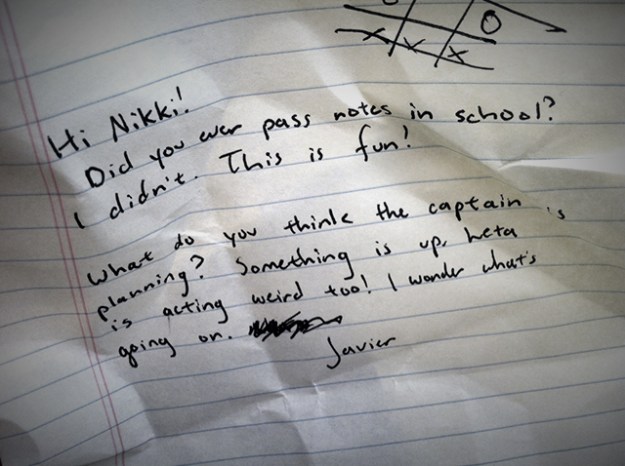 Hi Nikki!
Did you ever pass notes in school?
I didn't. This is fun!
What do you think the captain 's
planning? Something is up. Keta
is acting weird too! I wonder what's
going on.
Javier